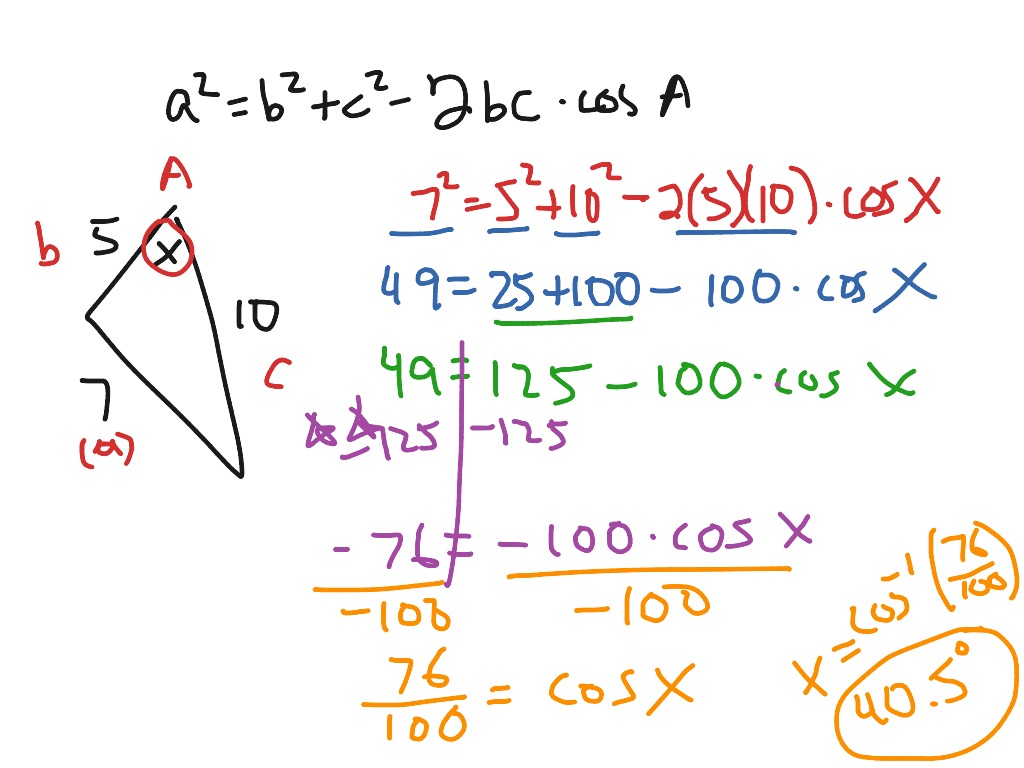 a² = b² + c² - 2bc · cos A
A
b 5 x
10
c
7
(a)
7² = 5² + 10² - 2(5)(10) · cos X
49 = 25 + 100 - 100 · cos X
49 = 125 - 100 · cos X
-125 -125
-76 = -100 · cos X
-100 -100
76/100 = cos X
x = cos⁻¹(76/100)
40.5°